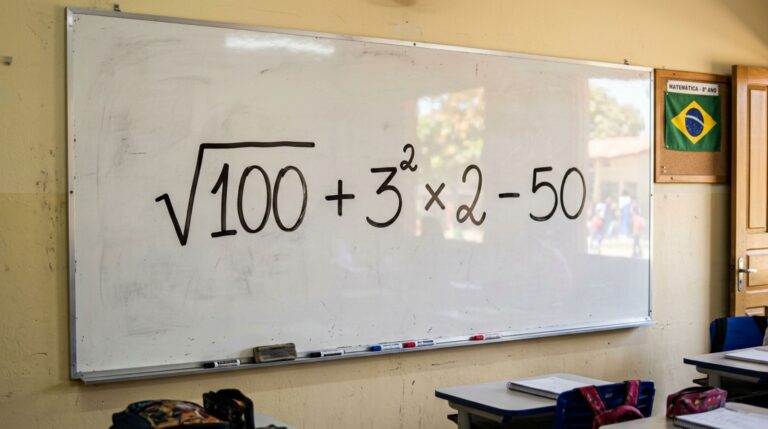 √100 + 3² × 2 - 50
MATEMÁTICA - 8º ANO